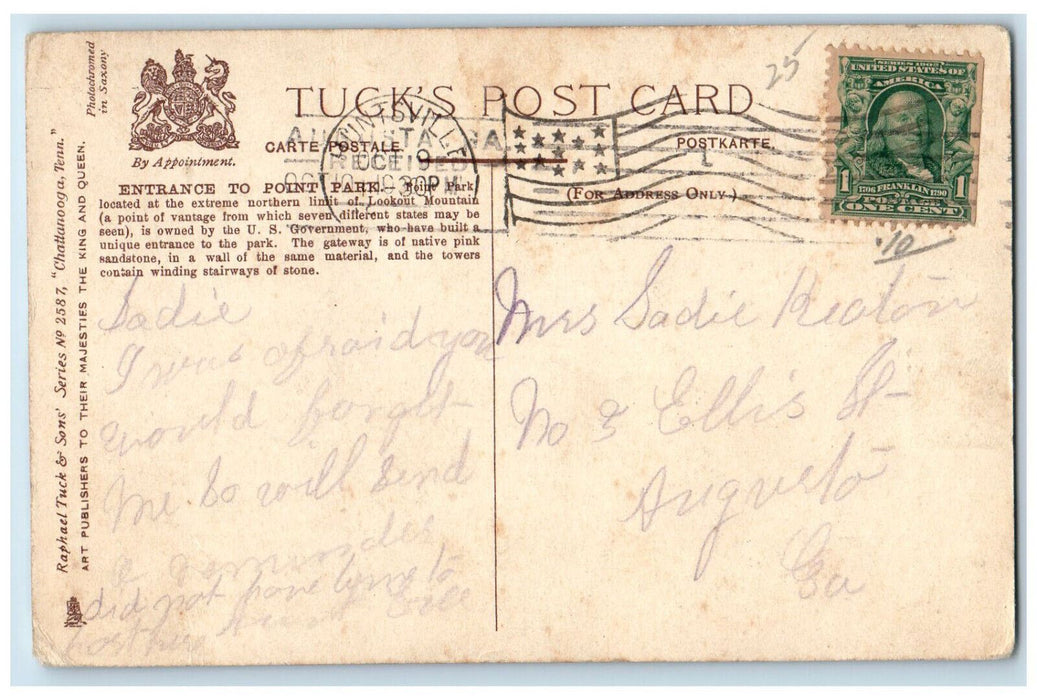 Photochromed
in Saxony
By Appointment.
TUCK'S POST CARD
CARTE POSTALE.
POSTKARTE.
(FOR ADDRESS ONLY.)
25
AUGUSTA, GA.
OCT 19
30PM
SERIES 1902
UNITED STATES OF
AMERICA
1 1706 FRANKLIN 1790 1
POSTAGE
ONE CENT
.10
ENTRANCE TO POINT PARK.—Point Park,
located at the extreme northern limit of Lookout Mountain
(a point of vantage from which seven different states may be
seen), is owned by the U. S. Government, who have built a
unique entrance to the park. The gateway is of native pink
sandstone, in a wall of the same material, and the towers
contain winding stairways of stone.
Raphael Tuck & Sons' Series Nº 2587, "Chattanooga, Tenn."
ART PUBLISHERS TO THEIR MAJESTIES THE KING AND QUEEN.
Sadie
I was afraid you
would forget
me so will send
a
did not have time to
Mrs Sadie Heaton
No 3 Ellis St
Augusta
Ga